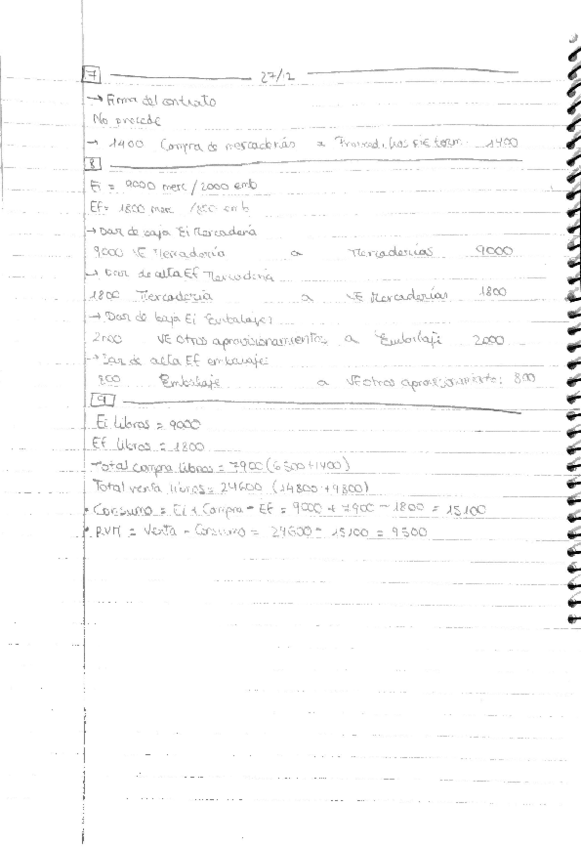 7 27/12
→ Firma del contrato
No procede
→ 1400 Compra de mercaderías a Proveed, ftas 1400
8
Ei = 9000 merc / 2000 emb
Ef = 1800 merc / 800 emb
→ Dar de baja Ei Mercadería
9000 VE Mercadería a Mercaderías 9000
→ Dar de alta Ef Mercadería
1800 Mercadería a VE Mercaderías 1800
→ Dar de baja Ei Embalajes
2000 VE otros aprovisionamientos a Embalaje 2000
→ Dar de alta Ef embalajes
800 Embalaje a VE otros aprovisionamientos 800
9
Ei libros = 9000
Ef libros = 1800
Total compra libros = 7900 (6500+1400)
Total venta libros = 24600 (14800+9800)
• Consumo = Ei + Compra - Ef = 9000 + 7900 - 1800 = 15100
• RVM = Venta - Consumo = 24600 - 15100 = 9500